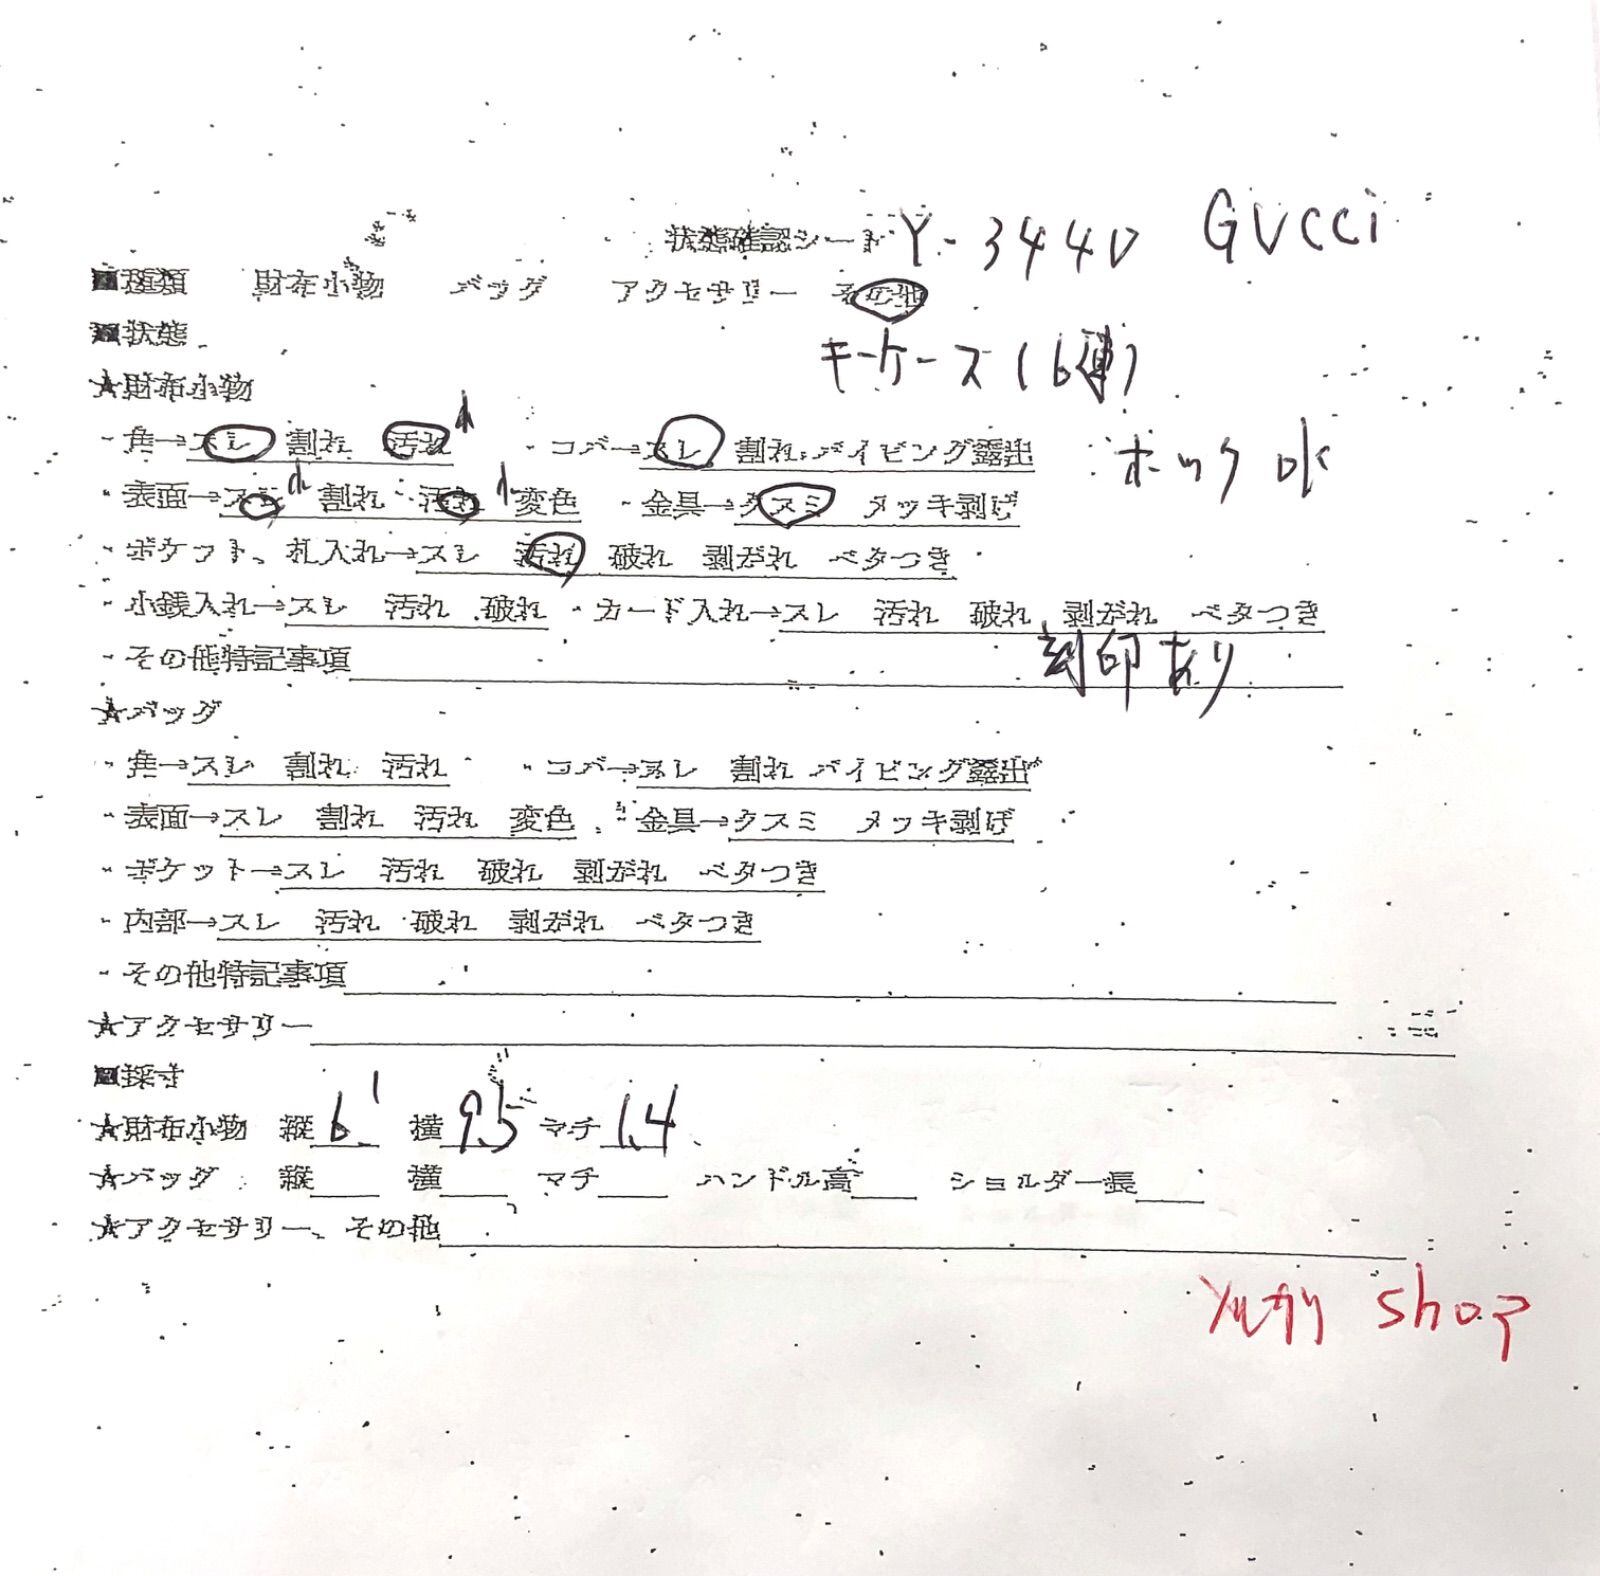 状態確認シート Y-3440 GUCCI
■種類 財布小物 バッグ アクセサリー その他
■状態
キーケース(6連)
★財布小物
・角→スレ 割れ 汚れ 小 ・コバ→スレ 割れ パイピング露出
ホック OK
・表面→スレ 小 割れ 汚れ 小 変色 ・金具→クスミ メッキ剥げ
・ポケット、札入れ→スレ 汚れ 破れ 剥がれ ベタつき
・小銭入れ→スレ 汚れ 破れ ・カード入れ→スレ 汚れ 破れ 剥がれ ベタつき
・その他特記事項 刻印あり
★バッグ
・角→スレ 割れ 汚れ ・コバ→スレ 割れ パイピング露出
・表面→スレ 割れ 汚れ 変色 ・金具→クスミ メッキ剥げ
・ポケット→スレ 汚れ 破れ 剥がれ ベタつき
・内部→スレ 汚れ 破れ 剥がれ ベタつき
・その他特記事項
★アクセサリー
■採寸
★財布小物 縦 6.1 横 9.5 マチ 1.4
★バッグ 縦 横 マチ ハンドル高 ショルダー長
★アクセサリー、その他
shop